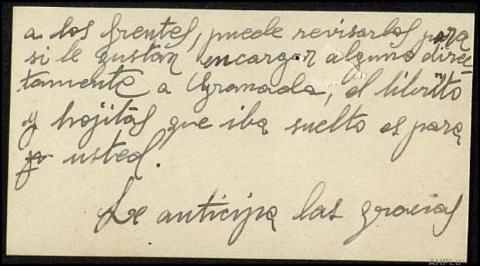 a los frentes, puede revisarlos para
si le gustan encargar alguno direc-
tamente a Granada, el librito
y hojitas que iba suelto es para
usted.
Le anticipa las gracias